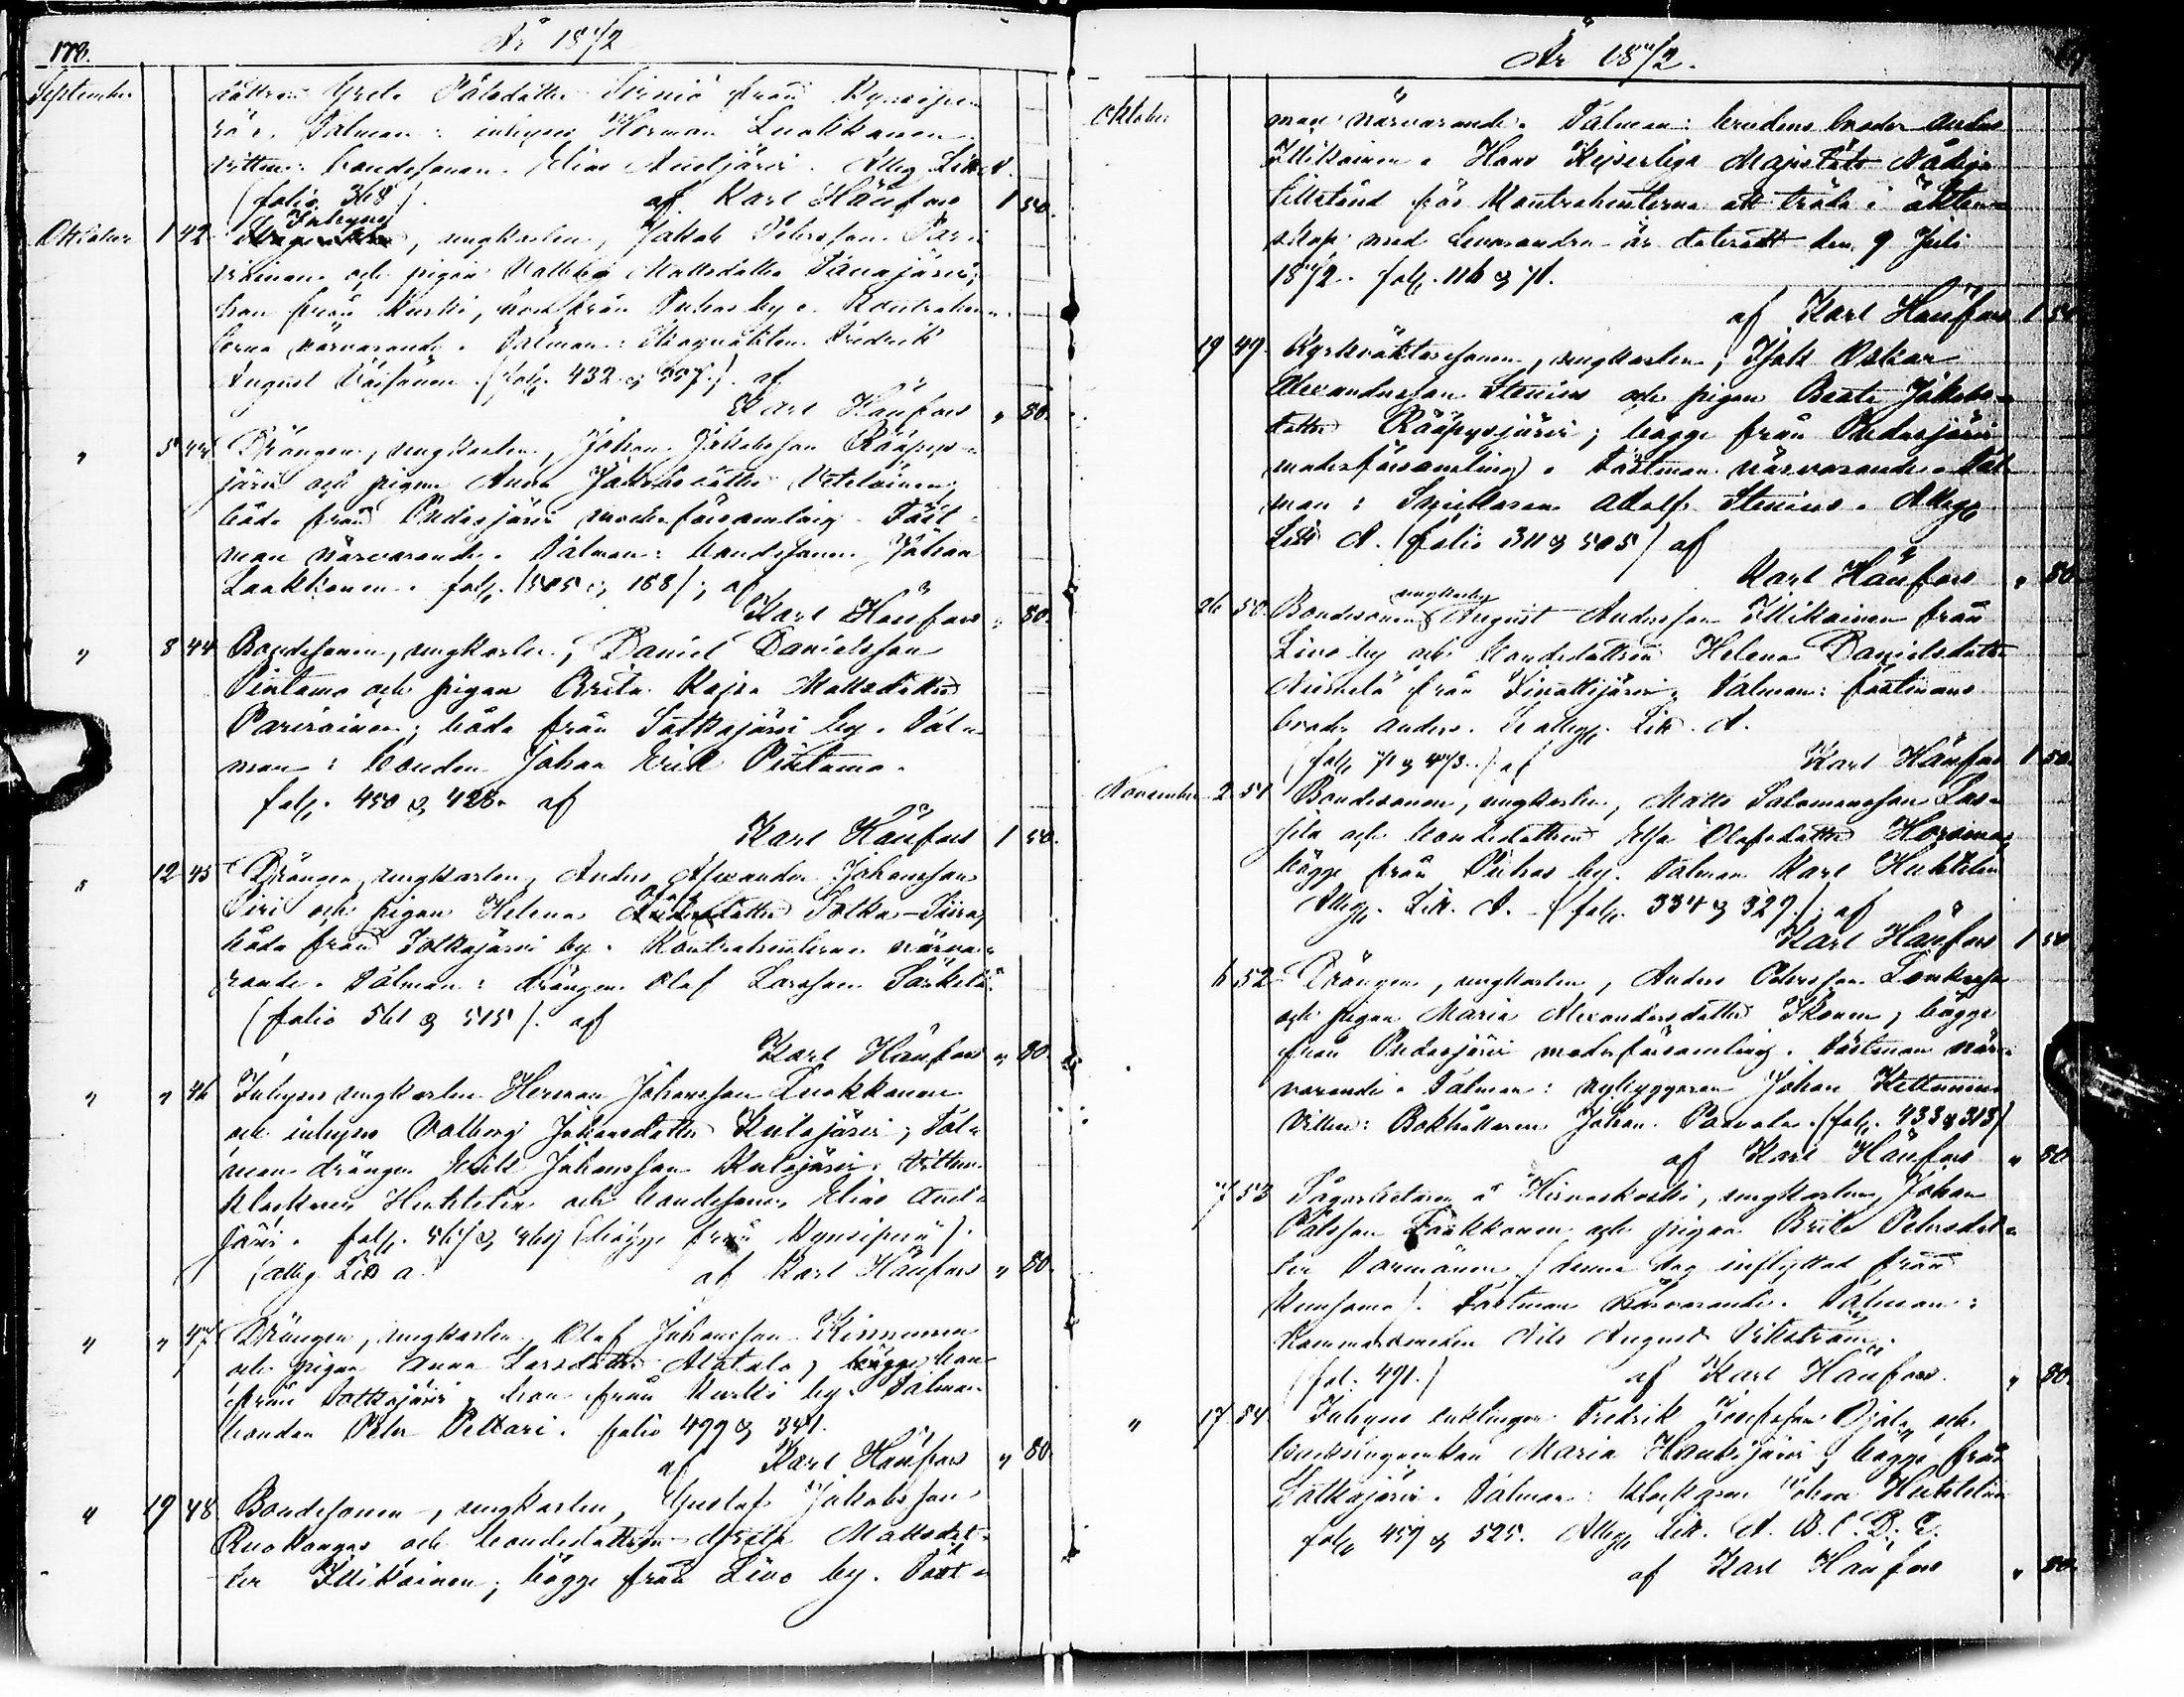 178.
År 1872
September
dottren Greta Pålsdotter Sirniö från Kynsipe
rä. Talman: inhyses Herman Luokkanen.
Vittne: bondesonen Elias Auetjärvi. Alleg. Litt. A.
(folio 368). af Karl Hänfors 1 50.
Inhyses
Oktober 1 42 , ungkarlen, Jakob Petersson Par
viainen och pigan Valborg Mattsdotter Panajärvi;
han från Kurki, hon från Puhos by. Kontrahen
terna närvarande. Talman: Fredrik
August Väisänen. (foll. 432 & 557). af
Karl Hänfors " 80.
" 5 43 Drängen, ungkarlen, Johan Jakobsson Rääpys
järvi och pigan Anna Jakobsdotter Veteläinen,
båda från Pudasjärvi moderförsamling. Fäst
man närvarande. Talman: bondesonen Johan
Laakkonen. foll. (505 & 188); af
Karl Hänfors " 80.
" 8 44 Bondesonen, ungkarlen, Daniel Danielsson
Pintamo och pigan Brita Kajsa Mattsdotter
Parviainen; båda från Sotkajärvi by. Tal
man: bonden Johan Erik Pintamo.
foll. 450 & 428. af
Karl Hänfors 1 50.
" 12 45 Drängen, ungkarlen, Anders Alexander Johansson
Piri och pigan Helena dotter Sotka-Tiira,
båda från Sotkajärvi by. Kontrahenterna närva
rande. Talman: drängen Olof Larsson Särkelä.
(folio 561 & 515). af
Karl Hänfors " 80
" " 46 Inhyses ungkarlen Herman Johansson Luokkanen
och inhyses Valborg Johansdotter Kulojärvi; Tal
man drängen Erik Johansson Kulojärvi. Vittnen
klockaren Huhtelin och bondesonen Elias Auet
järvi. foll. 367 & 369 (bägge från Kynsiperä).
(alleg. Litt a. af Karl Hänfors " 80.
" " 47 Drängen, ungkarlen, Olof Johansson Kinnunen
och pigan Anna Larsdotter Alatalo, han
från Sotkajärvi, hon från Kurki by. Talman
bonden Peter Pettari. folio 499 & 341.
af Karl Hänfors " 80.
" 19 48 Bondesonen, ungkarlen, Gustaf Jakobsson
Ruokangas och bondedottren Greta Mattsdot
ter Illikainen; bägge från Livo by. Fäst
År 1872.
Oktober
man närvarande. Talman: brudens broder Anders
Illikainen. Hans Kejserliga Majestäts Nådiga
tillstånd för Kontrahenterna att träda i äkten
skap med hvarandra är dateradt den 9 Juli
1872. foll. 116 & 71.
af Karl Hänfors 1 50
19 49. Kyrkväktaresonen, ungkarlen, Isak Oskar
Alexandersson Stenius och pigan Beata Jakobs
dotter Rääpysjärvi; bägge från Pudasjärvi
moderförsamling. Fästman närvarande. Tal
man: Snickaren Adolf Stenius. Alleg.
Litt A. (folio 311 & 505) af
Karl Hänfors " 80
ungkarlen
26 50. Bondesonen August Andersson Illikainen från
Livo by och bondedottren Helena Danielsdotter
Niemelä från Sirakkijärvi; Talman: fästmans
broder Anders. Se alleg. Litt. A.
(foll 71 & 473.) af Karl Hänfors 1 50.
November 2 51 Bondesonen, ungkarlen, Matts Salomonsson Las
sila och bondedottren Elsa Olofsdotter Hossina,
bägge från Puhos by. Talman Karl Huhtelin
Alleg. Litt. A. (foll. 334 & 329). af
Karl Hänfors 1 50
6 52 Drängen, ungkarlen, Anders Petersson Lonkasja
och pigan Maria Alexandersdotter Ikonen, bägge
från Pudasjärvi moderförsamling. Fästman när
varande. Talman: nybyggaren Johan Kettunen
Vittne: Bokhållaren Johan Paavola. (foll. 433 & 313)
af Karl Hänfors " 80
7 53 Sågarbetaren å Hirvaskoski, ungkarlen, Johan
Pålsson Laakkonen och pigan Brita Petersdot
ter Sarmänen (denna dag inflyttad från
Kuusamo). Fästman närvarande. Talman:
Hammarsmeden Nils August Vikström.
(fol. 491.) af Karl Hänfors. " 80.
" 17 54 Inhyses enklingen Fredrik Josefsson Ojala och
bruksingenkan Maria Haukijärvi; bägge från
Sotkajärvi. Talman: klockaren Johan Huhtelin
foll. 459 & 525. Alleg. Litt. A. B. C. D. E.
af Karl Hänfors " 80.